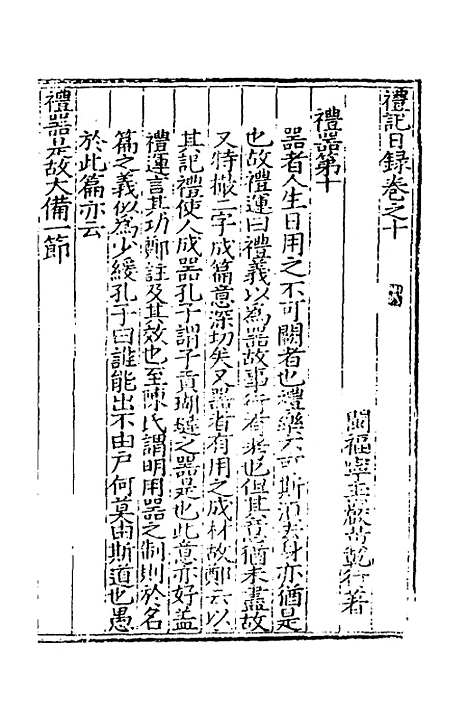 禮記日録卷之十
閩福寧黄乾行著
禮器第十
器者人生日用之不可闕者也禮樂不可斯須去身亦猶是
也故禮運曰禮義以為器故事行有考也但其意猶未盡故
又特撮二字成篇意深切矣又器者有用之成材故鄭云以
其記禮使人成器孔子謂子貢瑚璉之器是也此意亦好蓋
禮運言其功鄭註及其效也至陳氏謂明用器之制則於名
篇之義似為少緩孔子曰誰能出不由戶何莫由斯道也愚
於此篇亦云
禮器是故大備一節